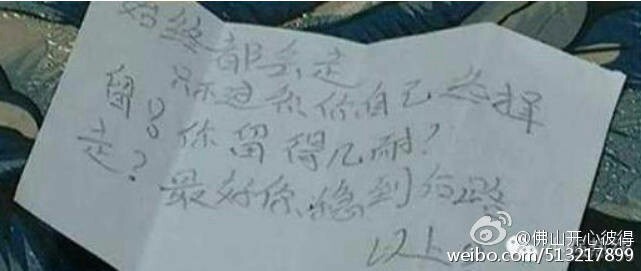 始终都会走
只不过系你自己选择
留？你留得几耐？
走？最好你稳到份路
以上
@佛山开心彼得
weibo.com/513217899